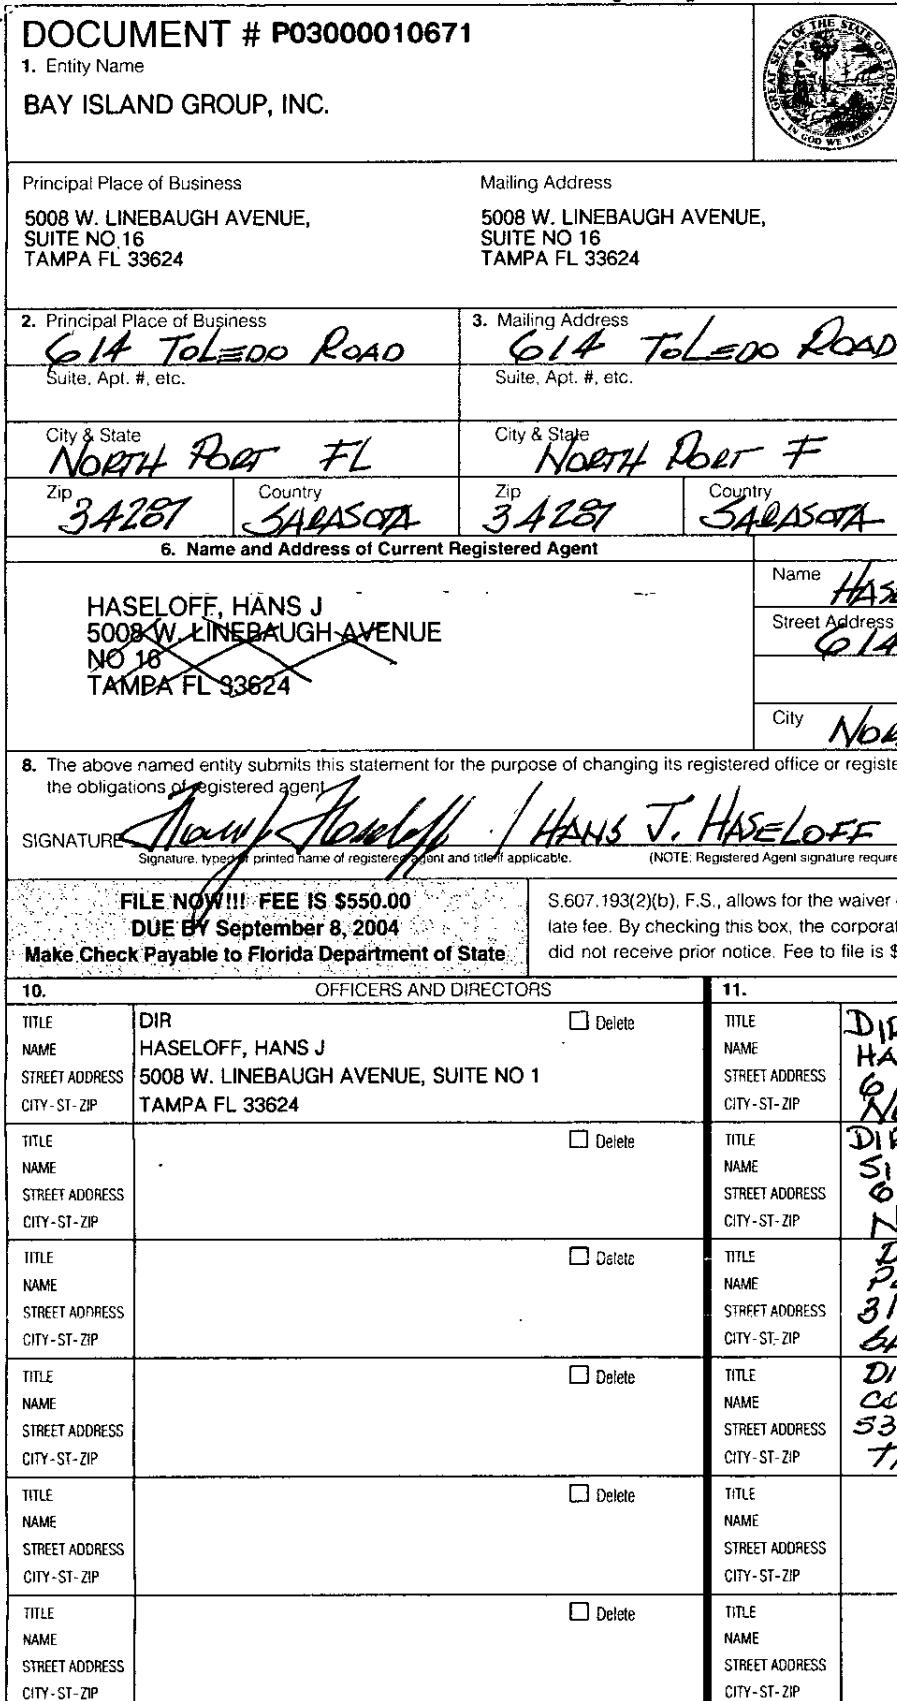 DOCUMENT # P03000010671
1. Entity Name
BAY ISLAND GROUP, INC.
GREAT SEAL OF THE STATE OF FLORIDA
IN GOD WE TRUST
Principal Place of Business
5008 W. LINEBAUGH AVENUE,
SUITE NO 16
TAMPA FL 33624
Mailing Address
5008 W. LINEBAUGH AVENUE,
SUITE NO 16
TAMPA FL 33624
2. Principal Place of Business
614 TOLEDO ROAD
Suite, Apt. #, etc.
City & State
NORTH PORT FL
Zip
34287
Country
SARASOTA
3. Mailing Address
614 TOLEDO ROAD
Suite, Apt. #, etc.
City & State
NORTH PORT F
Zip
34287
Country
SARASOTA
6. Name and Address of Current Registered Agent
HASELOFF, HANS J
5008 W. LINEBAUGH AVENUE
NO 16
TAMPA FL 33624
Name HASE
Street Address
614
City NOR
8. The above named entity submits this statement for the purpose of changing its registered office or registe
the obligations of registered agent
SIGNATURE Hans J Haseloff / HANS J. HASELOFF
Signature, typed or printed name of registered agent and title if applicable. (NOTE: Registered Agent signature require
FILE NOW!!! FEE IS $550.00
DUE BY September 8, 2004
Make Check Payable to Florida Department of State
S.607.193(2)(b), F.S., allows for the waiver
late fee. By checking this box, the corporat
did not receive prior notice. Fee to file is $
10. OFFICERS AND DIRECTORS
TITLE DIR Delete
NAME HASELOFF, HANS J
STREET ADDRESS 5008 W. LINEBAUGH AVENUE, SUITE NO 1
CITY-ST-ZIP TAMPA FL 33624
TITLE Delete
NAME
STREET ADDRESS
CITY-ST-ZIP
TITLE Delete
NAME
STREET ADDRESS
CITY-ST-ZIP
TITLE Delete
NAME
STREET ADDRESS
CITY-ST-ZIP
TITLE Delete
NAME
STREET ADDRESS
CITY-ST-ZIP
TITLE Delete
NAME
STREET ADDRESS
CITY-ST-ZIP
11.
TITLE DIR
NAME HA
STREET ADDRESS 6
CITY-ST-ZIP N
TITLE DIR
NAME SI
STREET ADDRESS 6
CITY-ST-ZIP N
TITLE D
NAME
STREET ADDRESS 31
CITY-ST-ZIP
TITLE DI
NAME CO
STREET ADDRESS 53
CITY-ST-ZIP
TITLE
NAME
STREET ADDRESS
CITY-ST-ZIP
TITLE
NAME
STREET ADDRESS
CITY-ST-ZIP